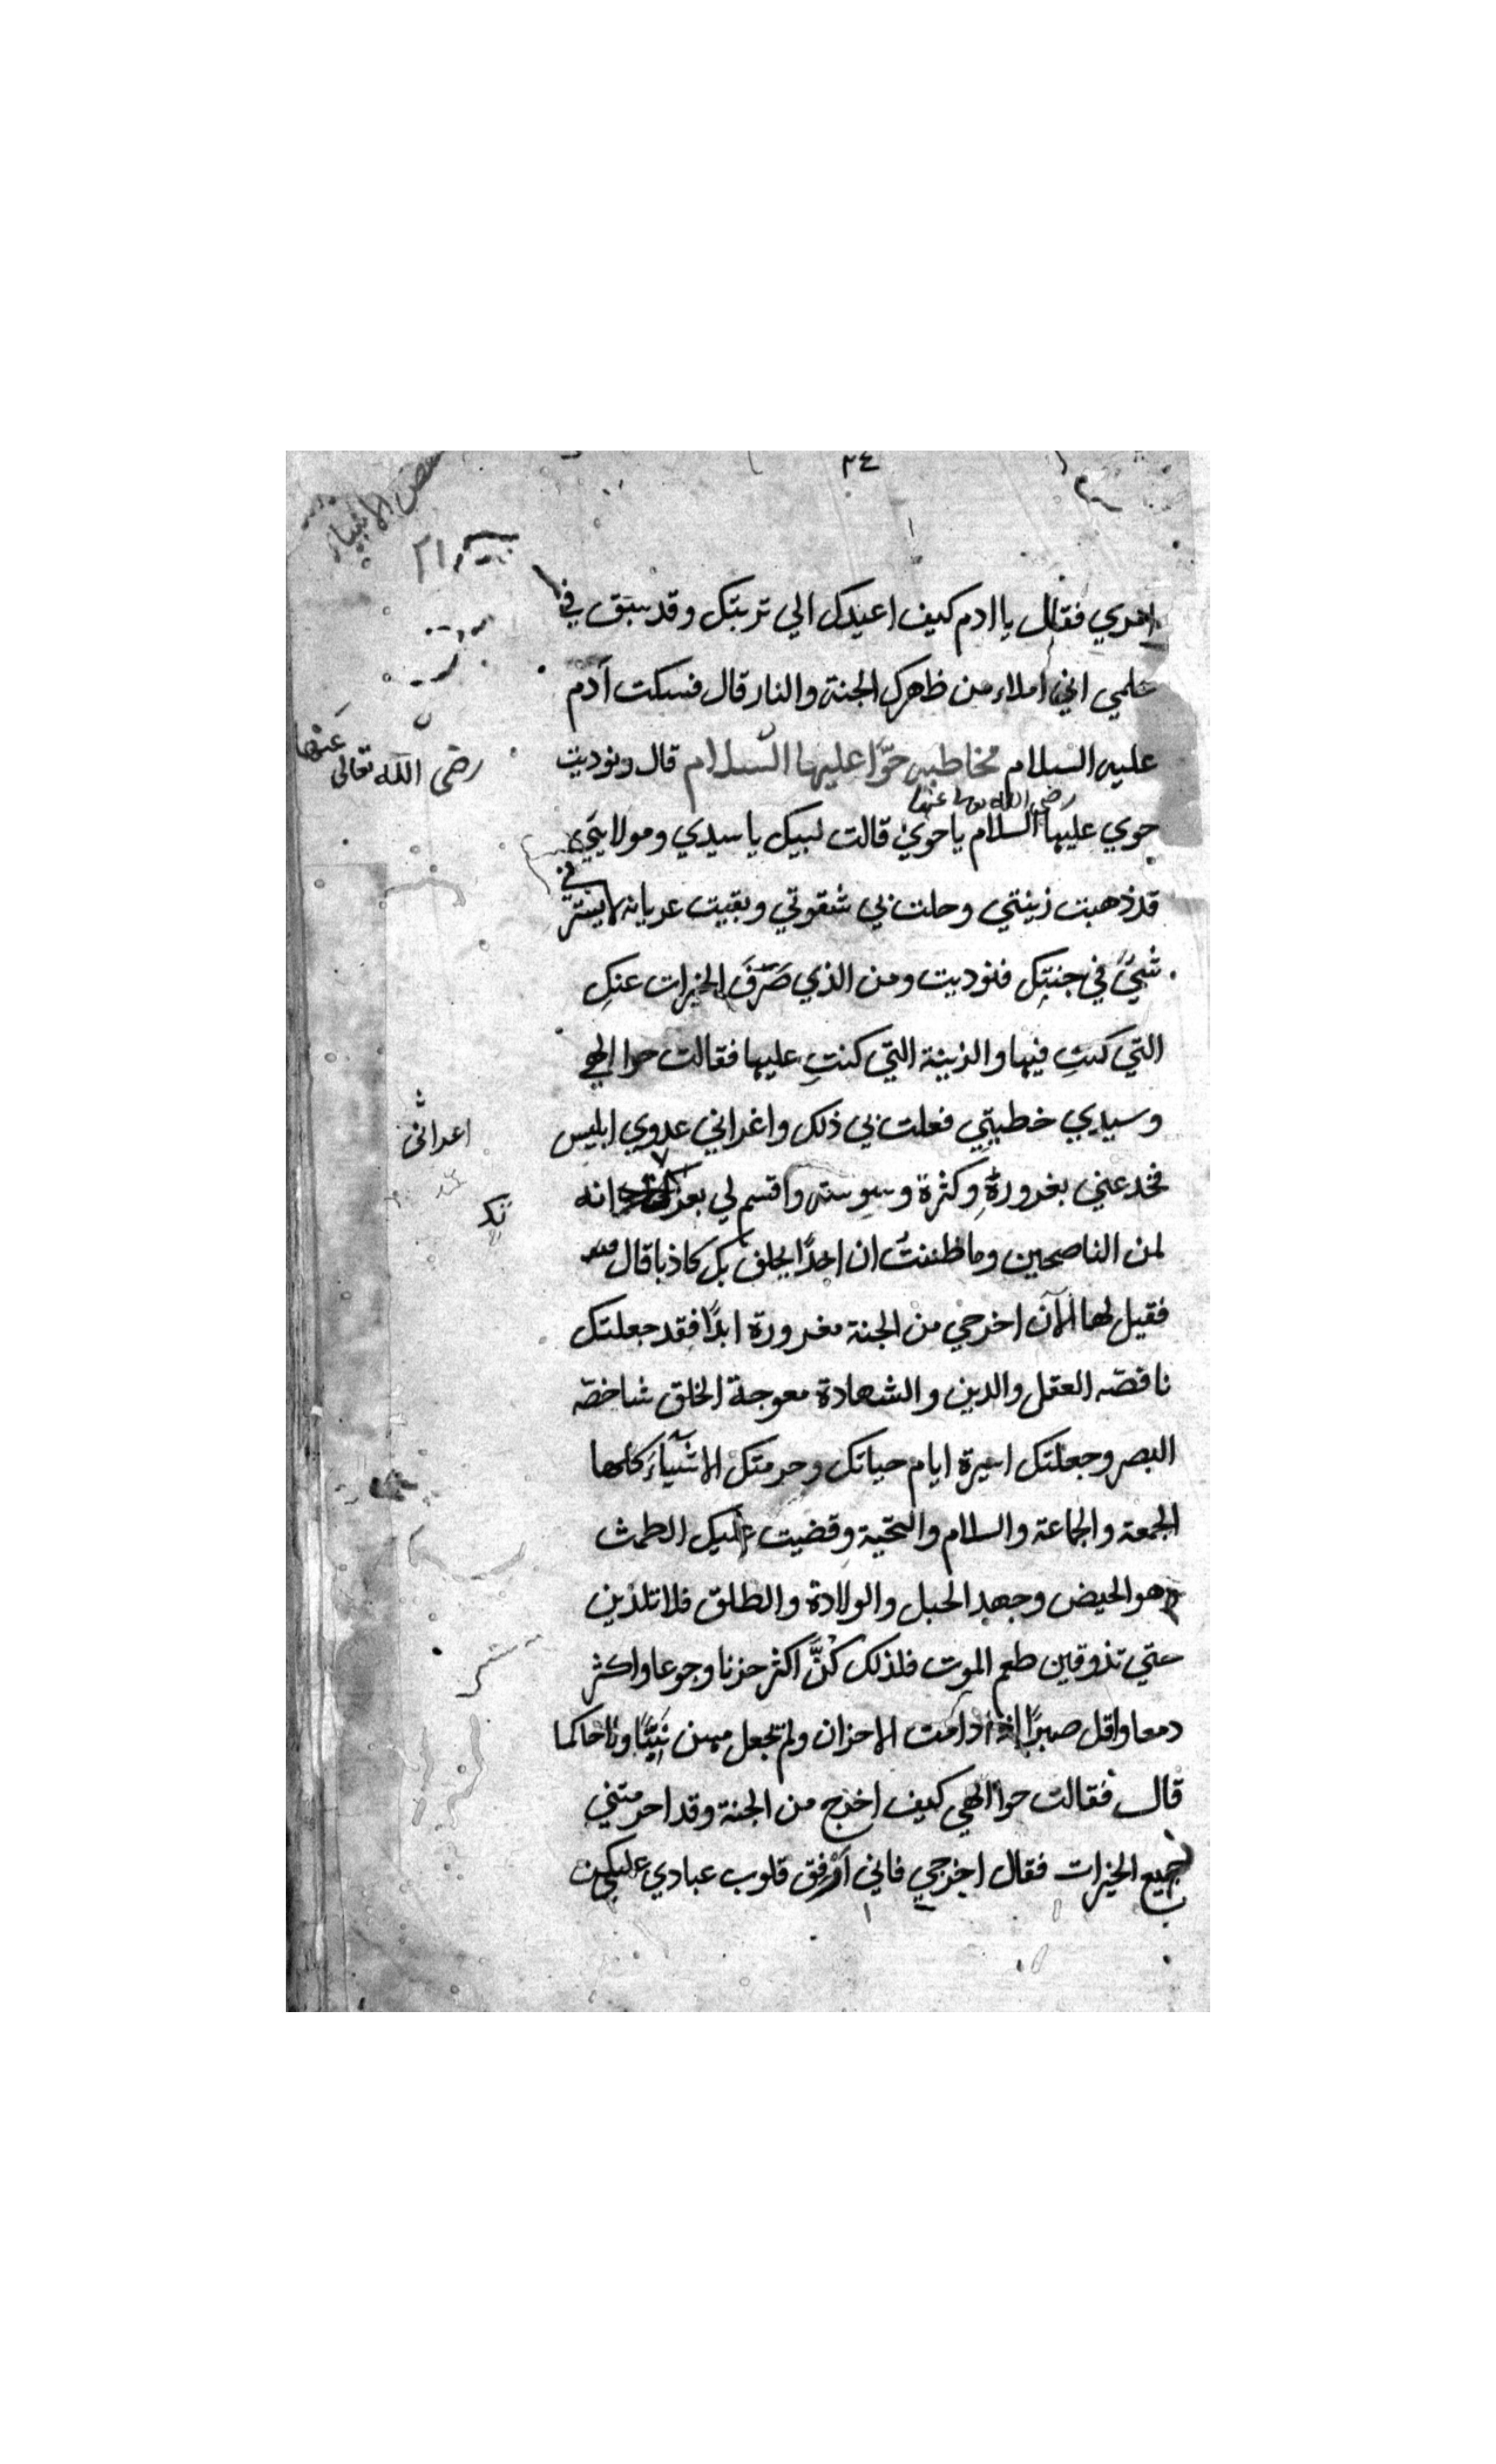 ٢٤
قصص الانبياء
امري فقال يا ادم كيف اعيدك الي تربتك وقد سبق في
علمي اني املاء من ظهرك الجنة والنار قال فسكت آدم
عليه السلام مخاطبه حوّا عليها السلام قال ونوديت
رضى الله تعالى عنها
رضي الله عنها
حوي عليها السلام يا حوي قالت لبيك يا سيدي ومولاي
قد ذهبت زينتي وحلت بي شقوتي وبقيت عريانه لا يسترني
شيءٌ في جنتِك فنوديت ومن الذي صَرَفَ الخيرات عنكِ
التي كنتِ فيها والزينة التي كنتِ عليها فقالت حوا الهي
وسيدي خطيتي فعلت بي ذلك واغراني عدوي ابليس
فخدعني بغروره وكثرة وسوسته واقسم لي بعزتك انه
لمن الناصحين وما ظننتُ ان احدًا يحلف بك كاذبا قال
فقيل لها الآن اخرجي من الجنة مغرورة ابدًا فقد جعلتك
ناقصة العقل والدين والشهادة معوجة الخلق شاخصة
البصر وجعلتك اسيرة ايام حياتك وحرمتك الاشياءَ كلها
الجمعة والجماعة والسلام والتحية وقضيت عليك الطمث
وهو الحيض وجهد الحبل والولادة والطلق فلا تلدين
حتي تذوقين طعم الموت فلذلك كُنَّ اكثر حزنا وجوعا واكثر
دمعا واقل صبرًا اذا دامت الاحزان ولم تجعل منهن نبيًّا ولا حاكما
قال فقالت حوا الهي كيف اخرج من الجنة وقد احرمتني
جميع الخيرات فقال اخرجي فاني ارفق قلوب عبادي عليكن